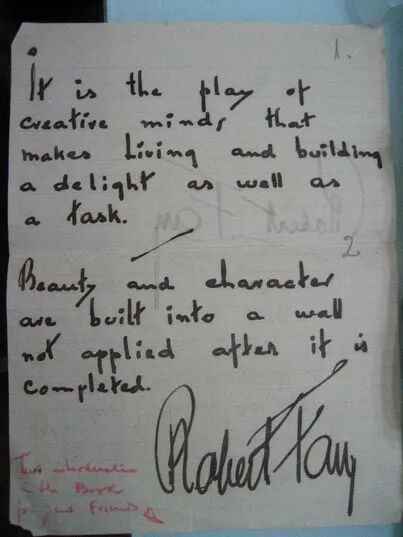 1.
It is the play of
creative minds that
makes Living and building
a delight as well as
a task.
2
Beauty and character
are built into a wall
not applied after it is
completed.
Robert
Two introduction
in the Book
for your Friends